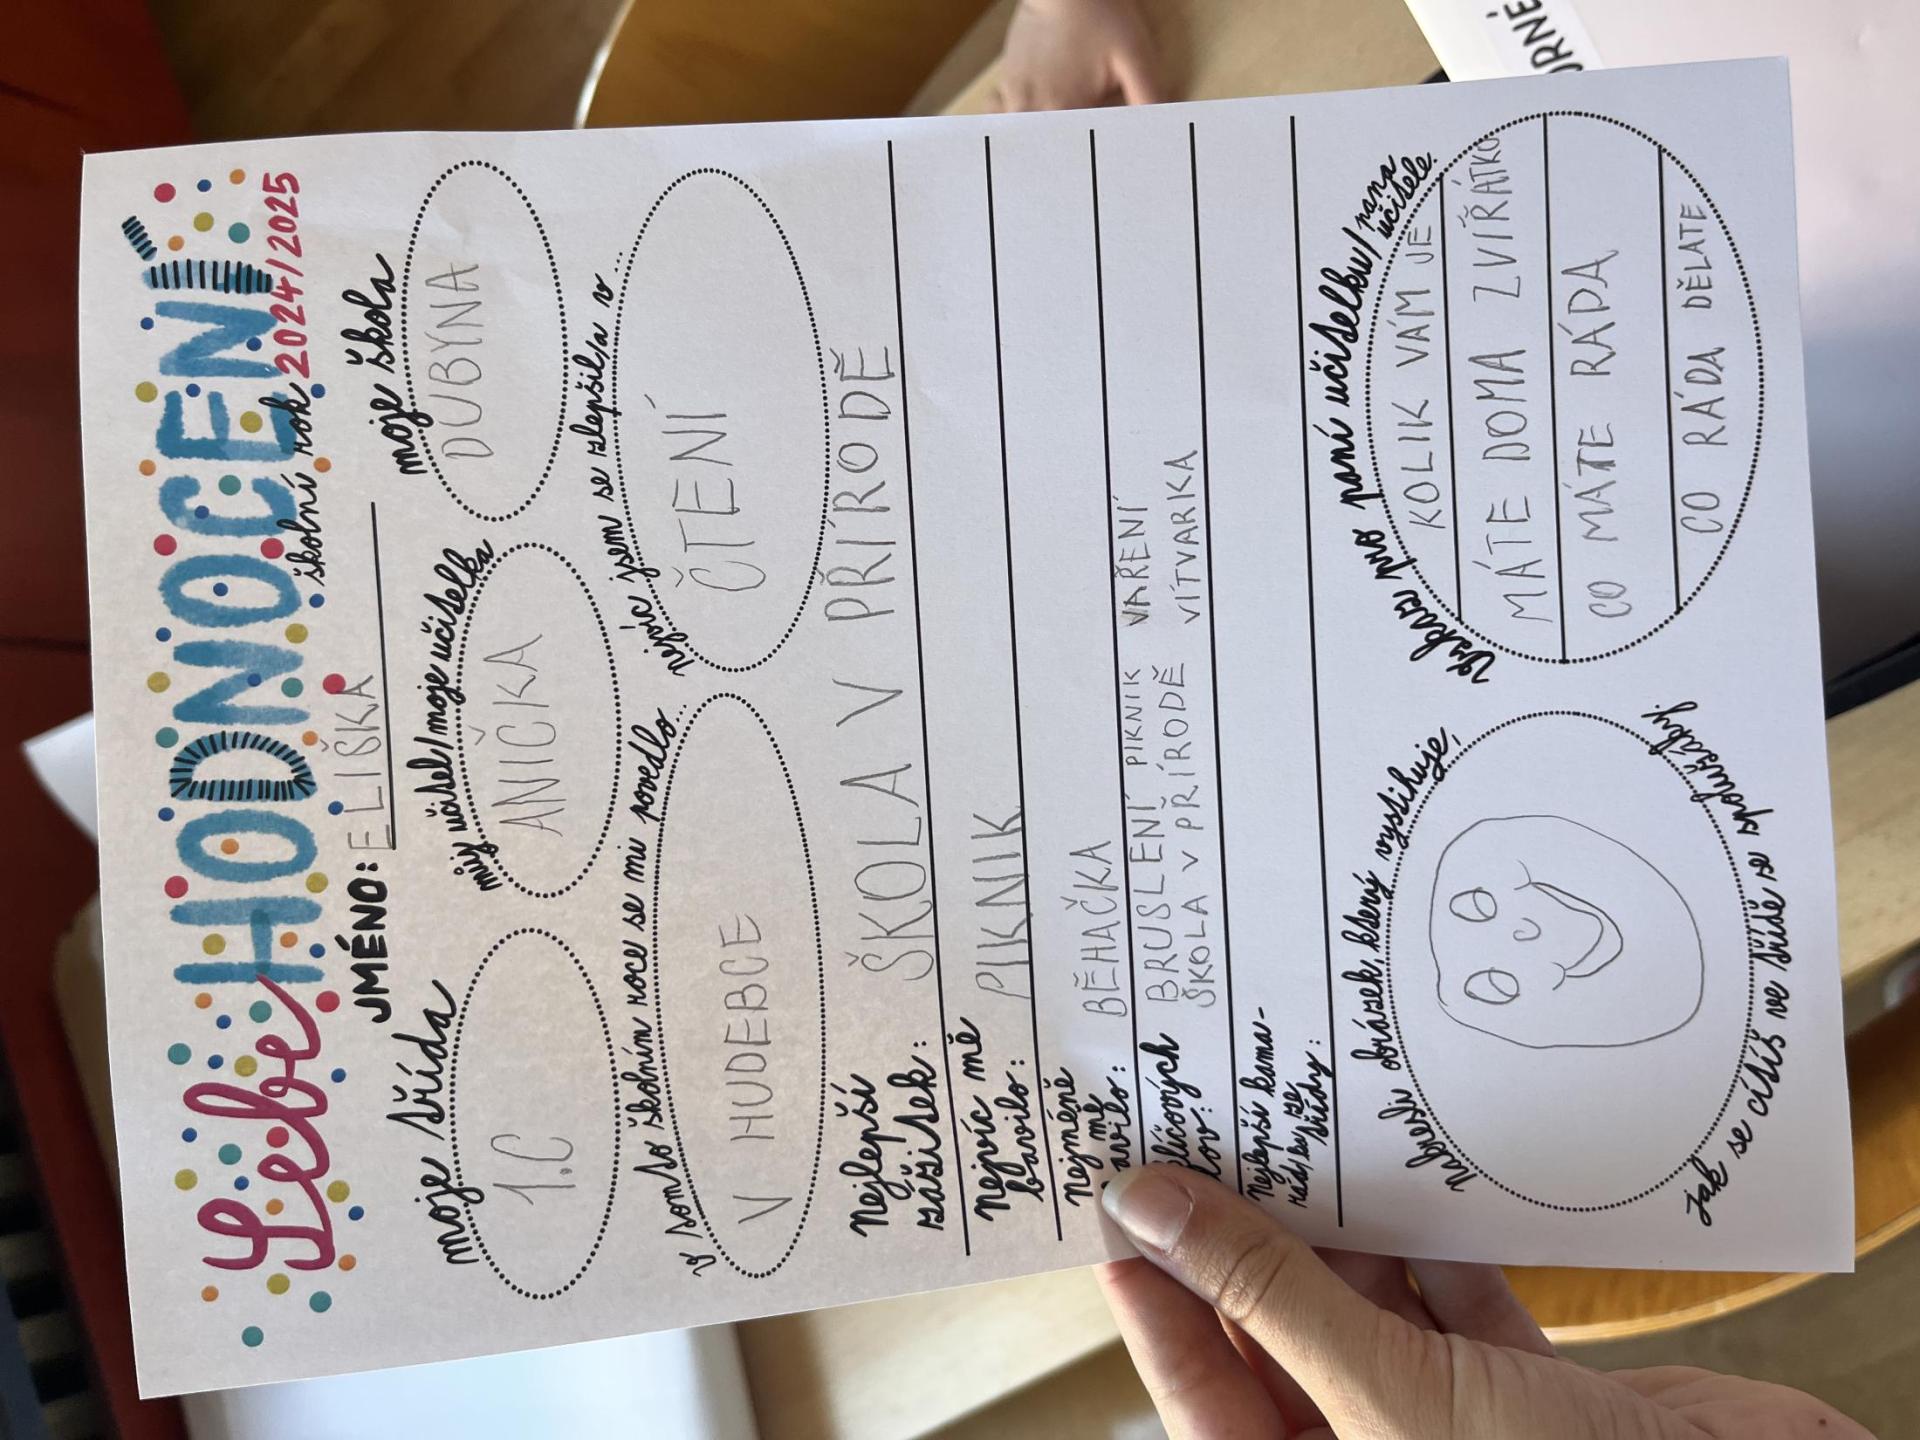 SebeHODNOCENÍ
školní rok 2024/2025
JMÉNO: ELIŠKA
moje třída
1.C
můj učitel/moje učitelka
ANIČKA
moje škola
DUBYNA
V tomto školním roce se mi povedlo...
V HUDEBCE
nejvíc jsem se zlepšil/a v...
ČTENÍ
Nejlepší
zážitek: ŠKOLA V PŘÍRODĚ
Nejvíc mě
bavilo: PIKNIK
Nejméně
mě
bavilo: BĚHAČKA
klíčových
slov: BRUSLENÍ PIKNIK VAŘENÍ
ŠKOLA V PŘÍRODĚ VÍTVARKA
Nejlepší kama-
rád/ka ze
třídy:
Nakresli obrázek, který vystihuje,
jak se cítíš ve třídě se spolužáky.
Vzkaz pro paní učitelku/pana
učitele
KOLIK VÁM JE
MÁTE DOMA ZVÍŘÁTKO
CO MÁTE RÁDA
CO RÁDA DĚLATE